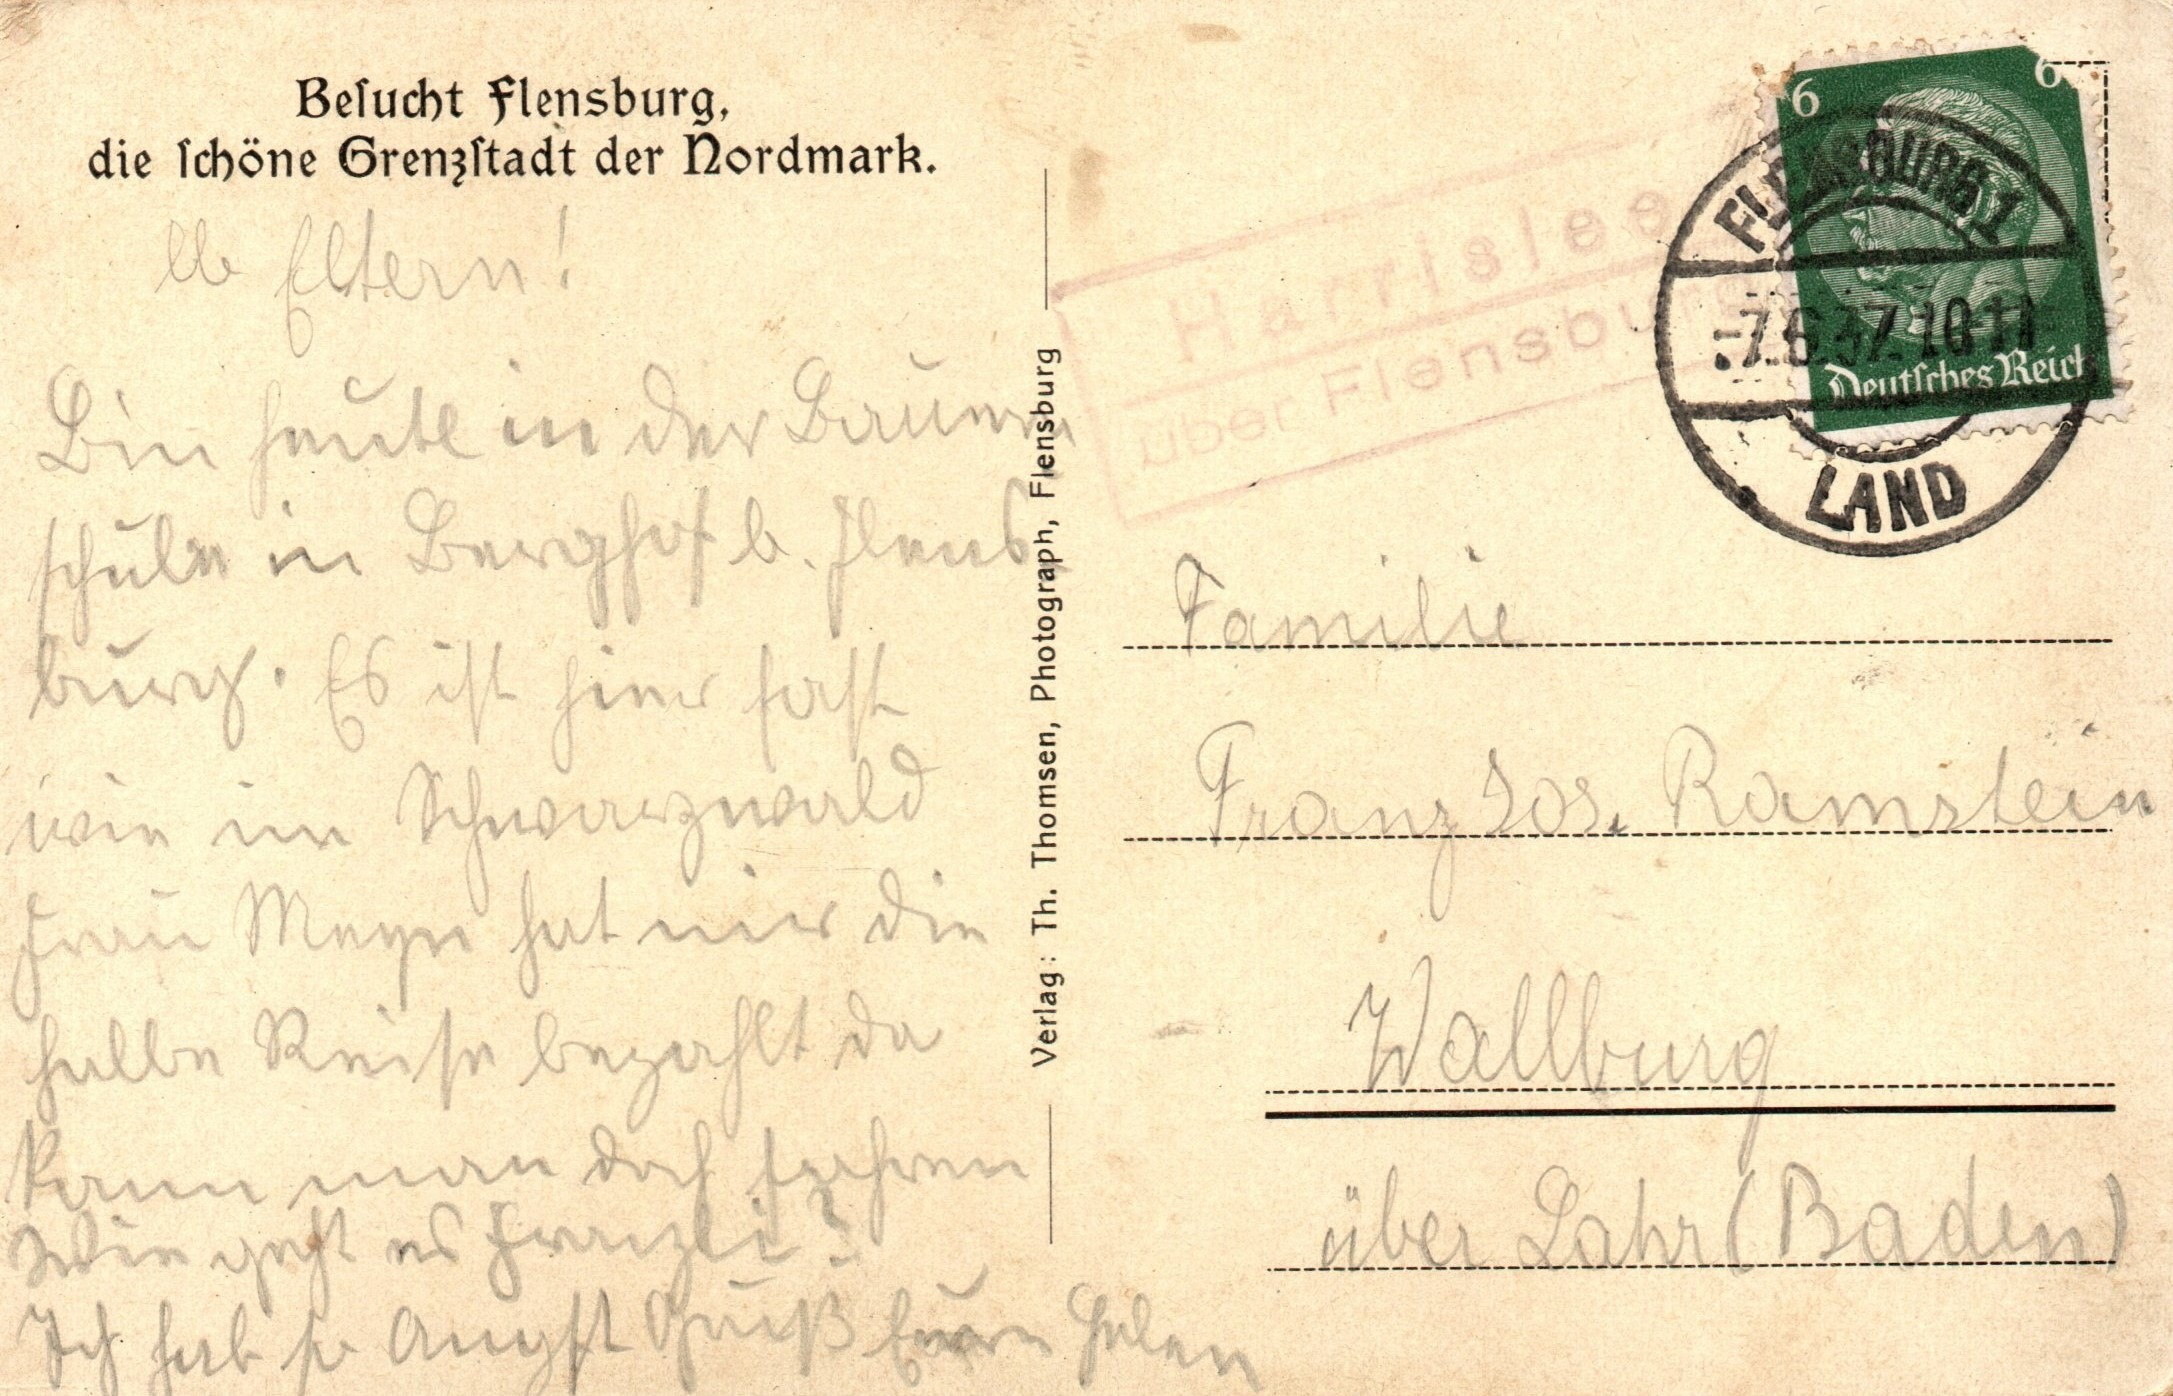 Besucht Flensburg,
die schöne Grenzstadt der Nordmark.
Lb Eltern!
Bin heute in der Bauern
schule in Berghof b. Flens
burg. Es ist hier fast
wie im Schwarzwald
Frau Meyn hat mir die
halbe Reise bezahlt da
kann man doch fahren
Wie geht es Franzli?
Ich hab so Angst Gruß Eure Helen
Verlag: Th. Thomsen, Photograph, Flensburg
Harrislee
über Flensburg
6 6
Deutsches Reich
FLENSBURG 1
-7.6.37.10-11
LAND
Familie
Franz Jos. Ramstein
Wallburg
über Lahr (Baden)